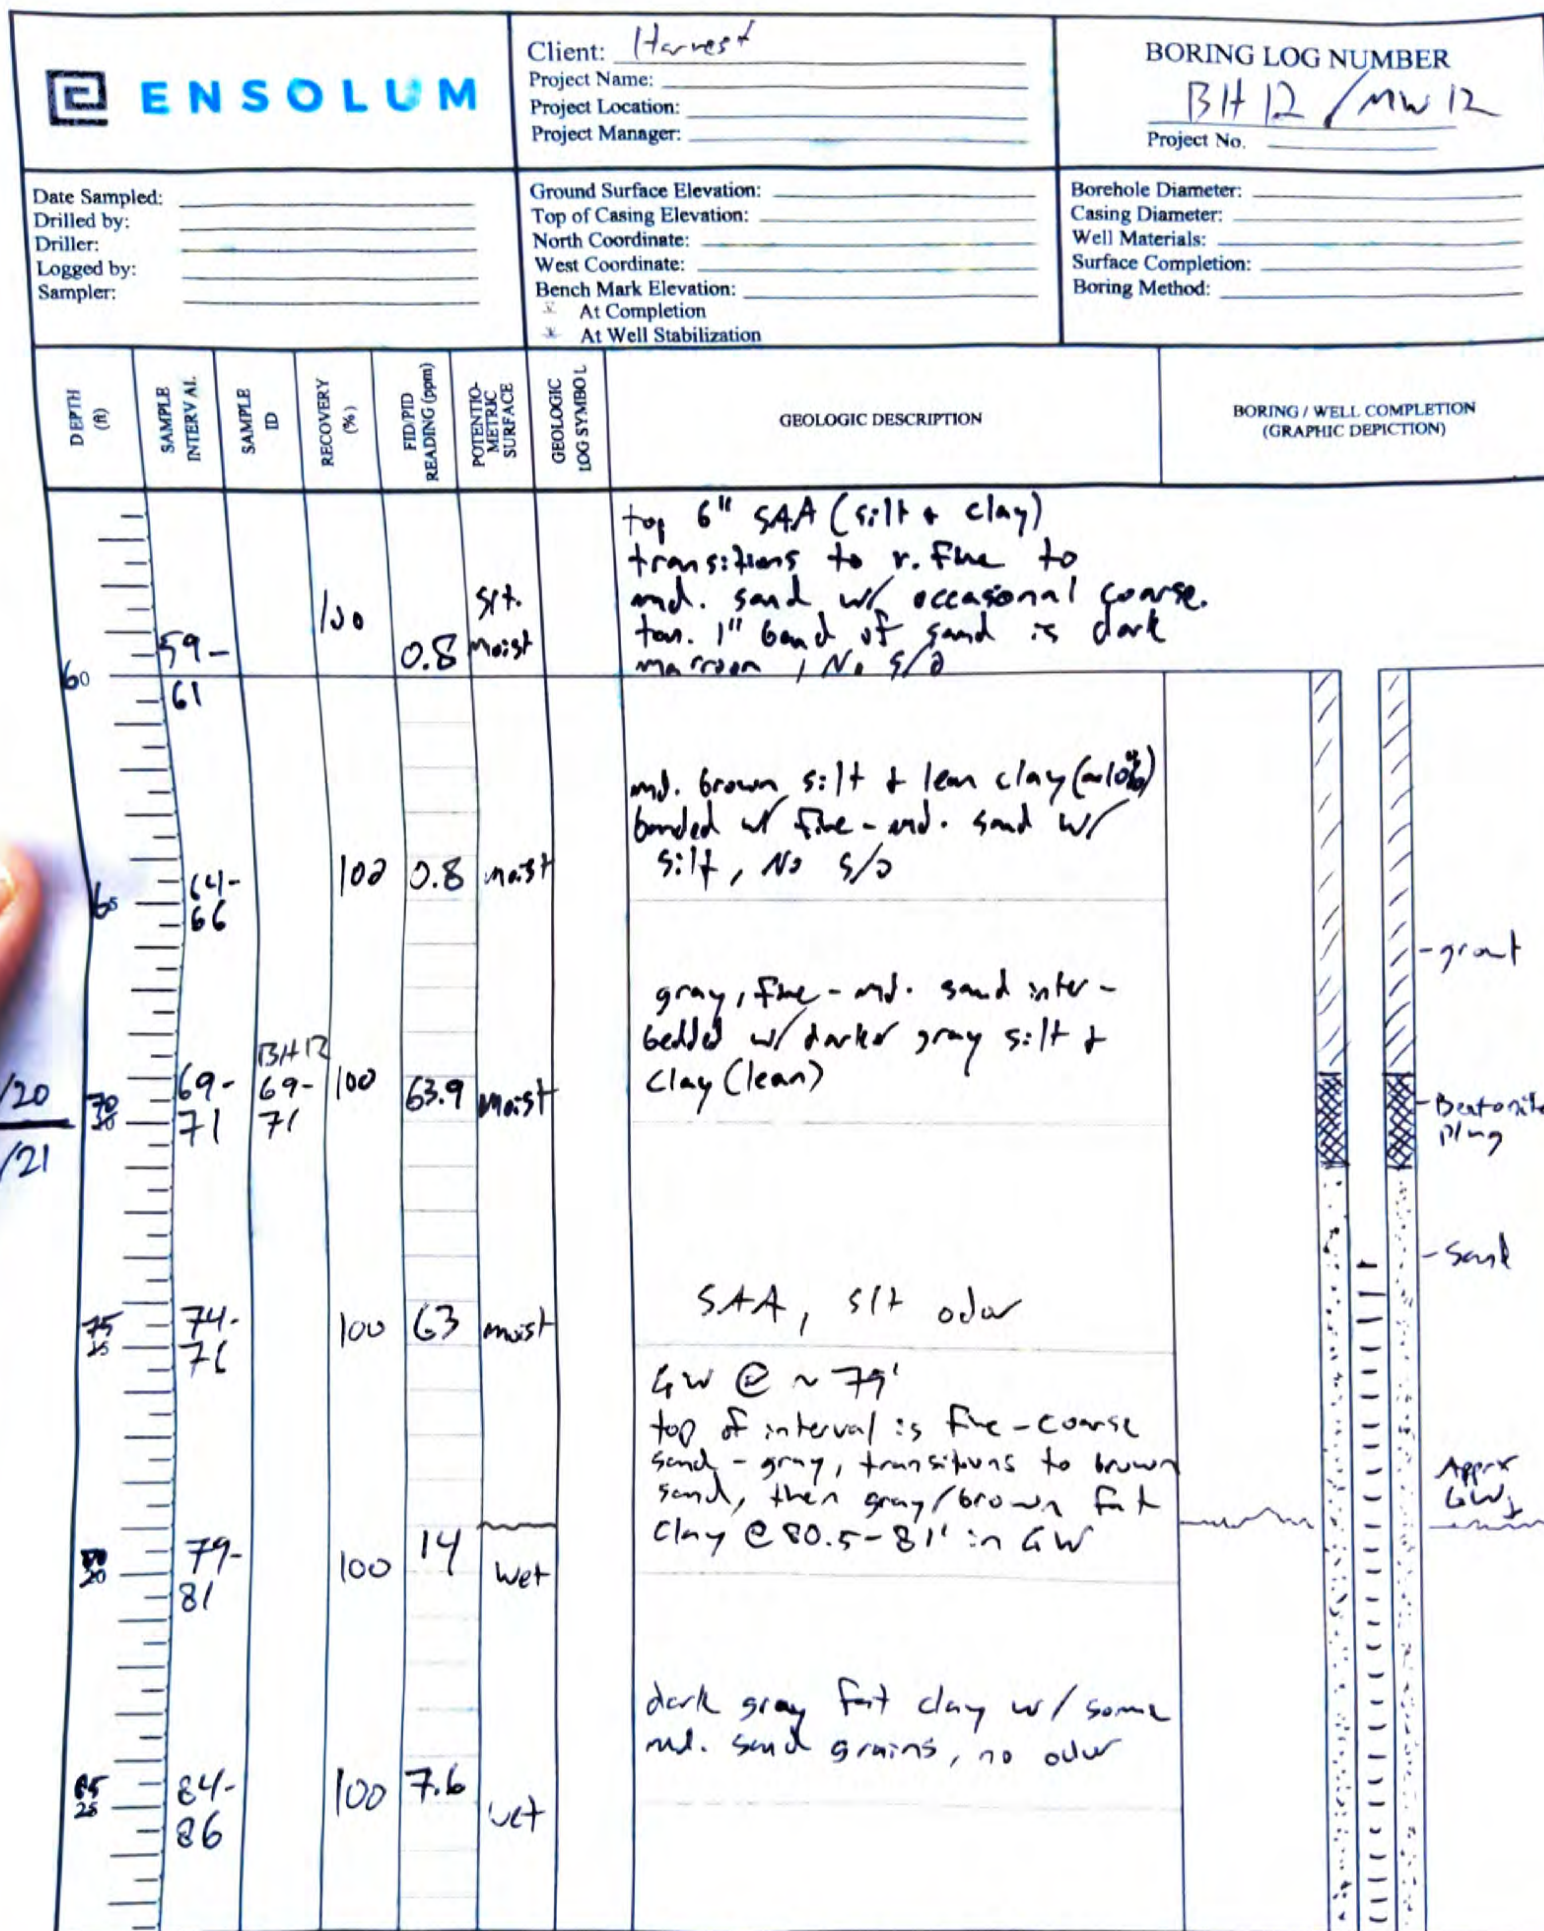 ENSOLUM
Client: Harvest
Project Name:
Project Location:
Project Manager:
BORING LOG NUMBER
BH 12 / MW 12
Project No.
Date Sampled:
Drilled by:
Driller:
Logged by:
Sampler:
Ground Surface Elevation:
Top of Casing Elevation:
North Coordinate:
West Coordinate:
Bench Mark Elevation:
At Completion
At Well Stabilization
Borehole Diameter:
Casing Diameter:
Well Materials:
Surface Completion:
Boring Method:
DEPTH (ft)
SAMPLE INTERVAL
SAMPLE ID
RECOVERY (%)
FID/PID READING (ppm)
POTENTIO-METRIC SURFACE
GEOLOGIC LOG SYMBOL
GEOLOGIC DESCRIPTION
BORING / WELL COMPLETION
(GRAPHIC DEPICTION)
top 6" SAA (silt + clay)
transitions to v. fine to
md. sand w/ occasonal coarse.
tan. 1" band of sand is dark
marroon, No s/o
59-
61
100
0.8
slt.
moist
60
md. brown silt + lean clay (~10%)
banded w/ fine-md. sand w/
silt, No s/o
64-
66
100
0.8
moist
65
-grout
gray, fine-md. sand inter-
bedded w/ darker gray silt +
clay (lean)
/20
/21
70
69-
71
BH12
69-
71
100
63.9
moist
-Bentonite
plug
-Sand
75
25
74-
76
100
63
moist
SAA, slt odor
GW @ ~ 79'
top of interval is fine-coarse
sand - gray, transitions to brown
sand, then gray/brown fat
clay @ 80.5-81' in GW
Apprx
GW
79-
81
100
14
wet
dark gray fat clay w/ some
md. sand grains, no odor
85
25
84-
86
100
7.6
wet